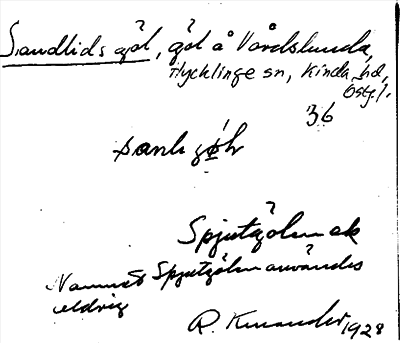 Sandlids göl, göl å Vårdslunda,
Tycklinge sn, Kinda hd,
Östg. l.
36
sanlı gøl
Spjutgölen ak
Namnet Spjutgölen användes
aldrig
R. Kinander 1928